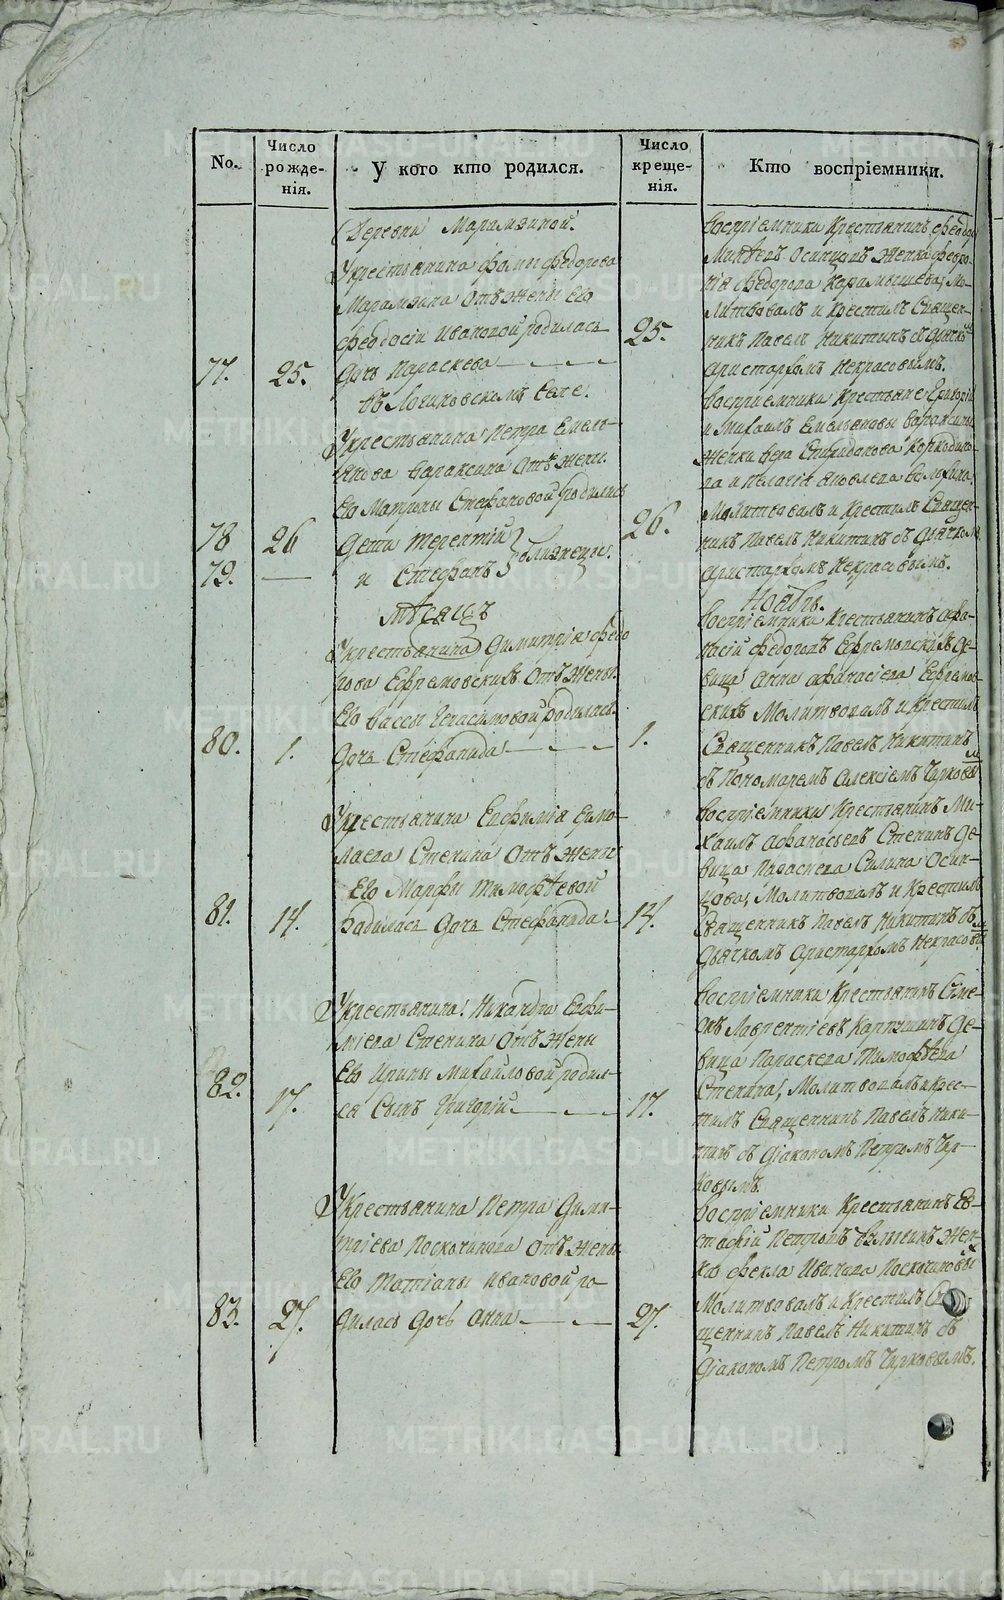 No.
Число рожде-
нія.
У кого кто родился.
Число креще-
нія.
Кто воспріемники.
Деревни Марамзиной.
Укрестьянина Фомы Федорова
Марамзина Отъ Жены Его
Феодосіи Ивановой родилась
77. 25. Дочь Параскева
25.
Воспріемники Крестьянинъ Феодоръ
Осипцамъ Женка Февро-
нія Федорова Карамышева, Мо-
литвовалъ и Крестилъ Священ-
никъ Павелъ Никитинъ съ Дьячкомъ
Аристархомъ Некрасовымъ.
въ Логиновскомъ Селе.
Укрестьянина Петра Емель-
янова Бараксина Отъ Жены
Его Матроны Стефановой родились
78 26 Дети Терентій
79. — и Стефанъ близнецы.
26.
Воспріемники Крестьяне Григорій
и Михаилъ Емельяновы Бараксины
Женки Вера Спиридонова
и Пелагія Яковлева
Молитвовалъ и Крестилъ Священ-
никъ Павелъ Никитинъ съ Дьячкомъ
Аристархомъ Некрасовымъ.
Мѣсяцъ
Ноябрь.
Укрестьянина Димитрія Федо
рова Ефремовскихъ Отъ Жены
Его Васы Герасимовой родилась
80. 1. Дочь Стефанида
1.
Воспріемники Крестьянинъ Афа-
насій Федоровъ Ефремовскихъ Де-
вица Анна Афанасіева Ефремов-
скихъ Молитвовалъ и Крестилъ
Священникъ Павелъ Никитинъ
съ Пономаремъ Алексіемъ Чирковымъ
Укрестьянина Евфимія Ермо-
лаева Стенина Отъ Жены
Его Марфы Тимофѣевой
81. 14. Радилась Дочь Стефанида
14.
Воспріемники Крестьянинъ Ми-
хаилъ Афанасьевъ Стенинъ Де-
вица Параскева Силина Осин-
цова, Молитвовалъ и Крестилъ
Священникъ Павелъ Никитинъ съ
Дьячкомъ Аристархомъ Некрасовымъ
Укрестьянина Никандра Евфи-
міева Стенина Отъ Жены
Его Ирины Михайловой родил-
82. 17. ся Сынъ Григорій
17.
Воспріемники Крестьянинъ Симе-
онъ Лаврентіевъ Карпишинъ Де-
вица Параскева Тимофѣева
Стенина, Молитвовалъ и Крес-
тилъ Священникъ Павелъ Ники-
тинъ съ Діакономъ Петромъ Чир-
ковымъ.
Укрестьянина Петра Дими-
тріева Поскочинова Отъ Жены
Его Татіаны Ивановой ро-
83. 27. дилась Дочь Анна
27.
Воспріемники Крестьянинъ Ев-
стафій Петровъ Жен-
ка Фекла Иванова Поскочиновы
Молитвовалъ и Крестилъ Свя-
щенникъ Павелъ Никитинъ съ
Діакономъ Петромъ Чирковымъ.
METRIKI.GASO-URAL.RU